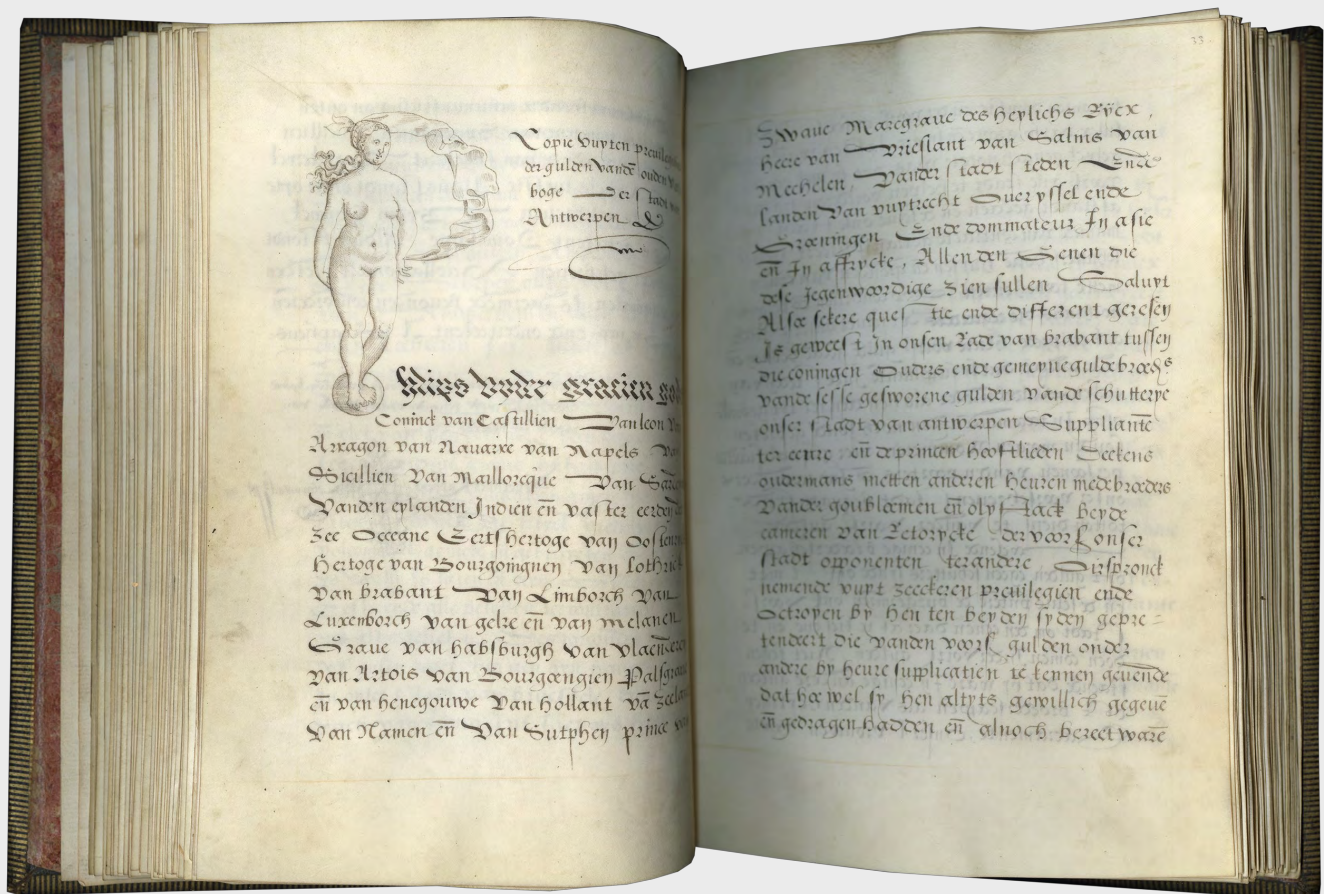 Copie vuyten previle
der gulden vandē ouden
boge Der stadt van
Antwerpen
hlips byder gracien go
Coninck van Castillien Van leon
Arragon van Nauarre van Napels Van
Sicillien Van Maillorcque Van Sar
Vanden eylanden Indien eñ vaster eerden
zee Occeane Eertshertoge van Oosten
Hertoge van Bourgoingnen van Lothrick
Van brabant Van Limborch Van
Luxenborch van gelre eñ van melanen
Graue van habsburgh van vlaenderen
van Artois van Bourgoengien Palsgra
eñ van henegouwe van hollant vā zeelan
Van Namen eñ Van Sutphen prince van
33
Zwaue Marcgraue des heylichs Rÿcx,
heere van Vrieslant van Salms van
Mechelen, Vander stadt steden Ende
landen van vuytrecht Ouer yssel ende
Groeningen Ende dommateur In asie
eñ In affrycke, Allen den Genen die
dese Jegenwoordige zien sullen Saluyt
Alsoe sekere questie ende different geresen
Is geweest In onsen Rade van brabant tussen
die coningen Ouders ende gemeyne guldebroeds
vande sesse gesworene gulden vande schutterye
onser stadt van antwerpen Suppliantē
ter eenre eñ de princen hooftlieden Deekens
oudermans metten anderen heuren medebroeders
Vander goubloemen eñ olyftack beyde
cameren van Retorycke der voors onser
stadt opponenten terandere Oirspronck
nemende vuyt zeeckeren preuilegien ende
Octroyen by hen ten beyden syden gepre=
tendeert die vanden voors gulden onder
andere by heure supplicatien te kennen geuende
dat hoe wel sy hen altyts gewillich gegeuē
eñ gedragen hadden eñ alnoch bereet warē